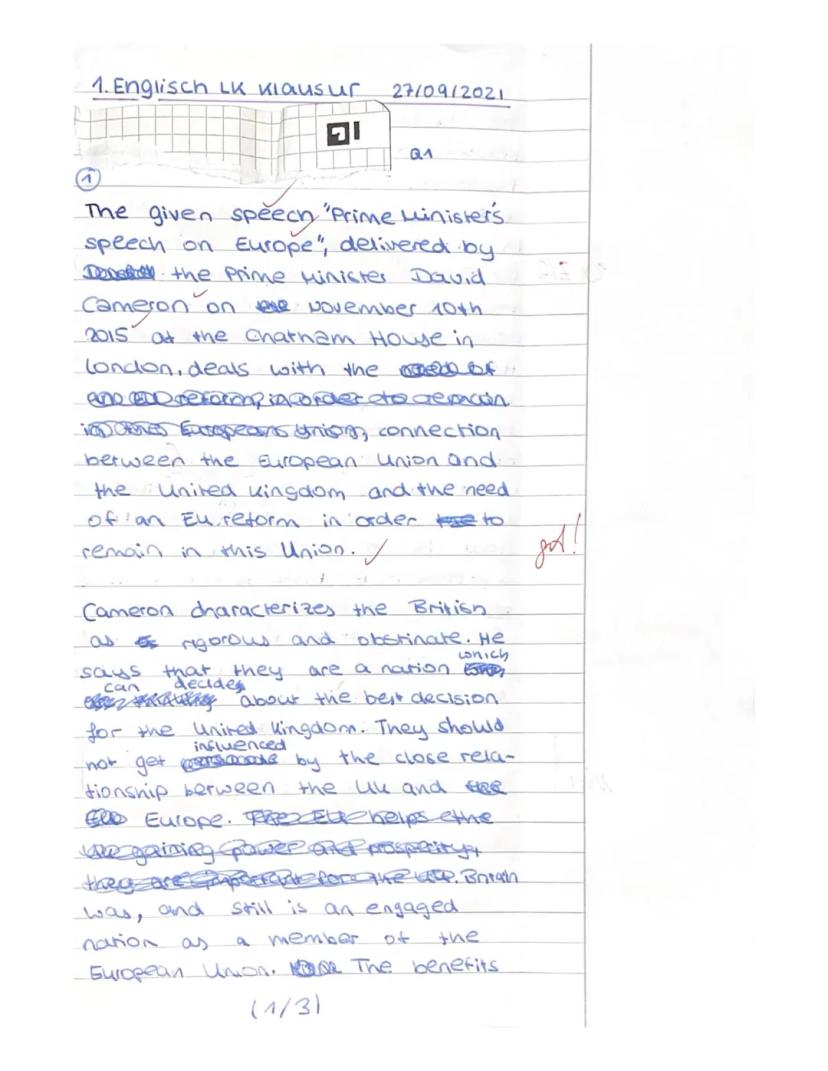 1. Englisch LK Klausur 27/09/2021
Q1
1
The given speech "Prime Minister's
speech on Europe", delivered by
the Prime Minister David
Cameron on November 10th
2015 at the Chatham House in
London, deals with the
connection
between the European Union and
the United Kingdom and the need
of an EU reform in order to
remain in this Union.
gut!
Cameron characterizes the British
as rigorous and obstinate. He
says that they are a nation which
can decides about the best decision
for the United Kingdom. They should
not get influenced by the close rela-
tionship between the UK and
Europe.
Britain
was, and still is an engaged
nation as a member of the
European Union. The benefits
(1/3)